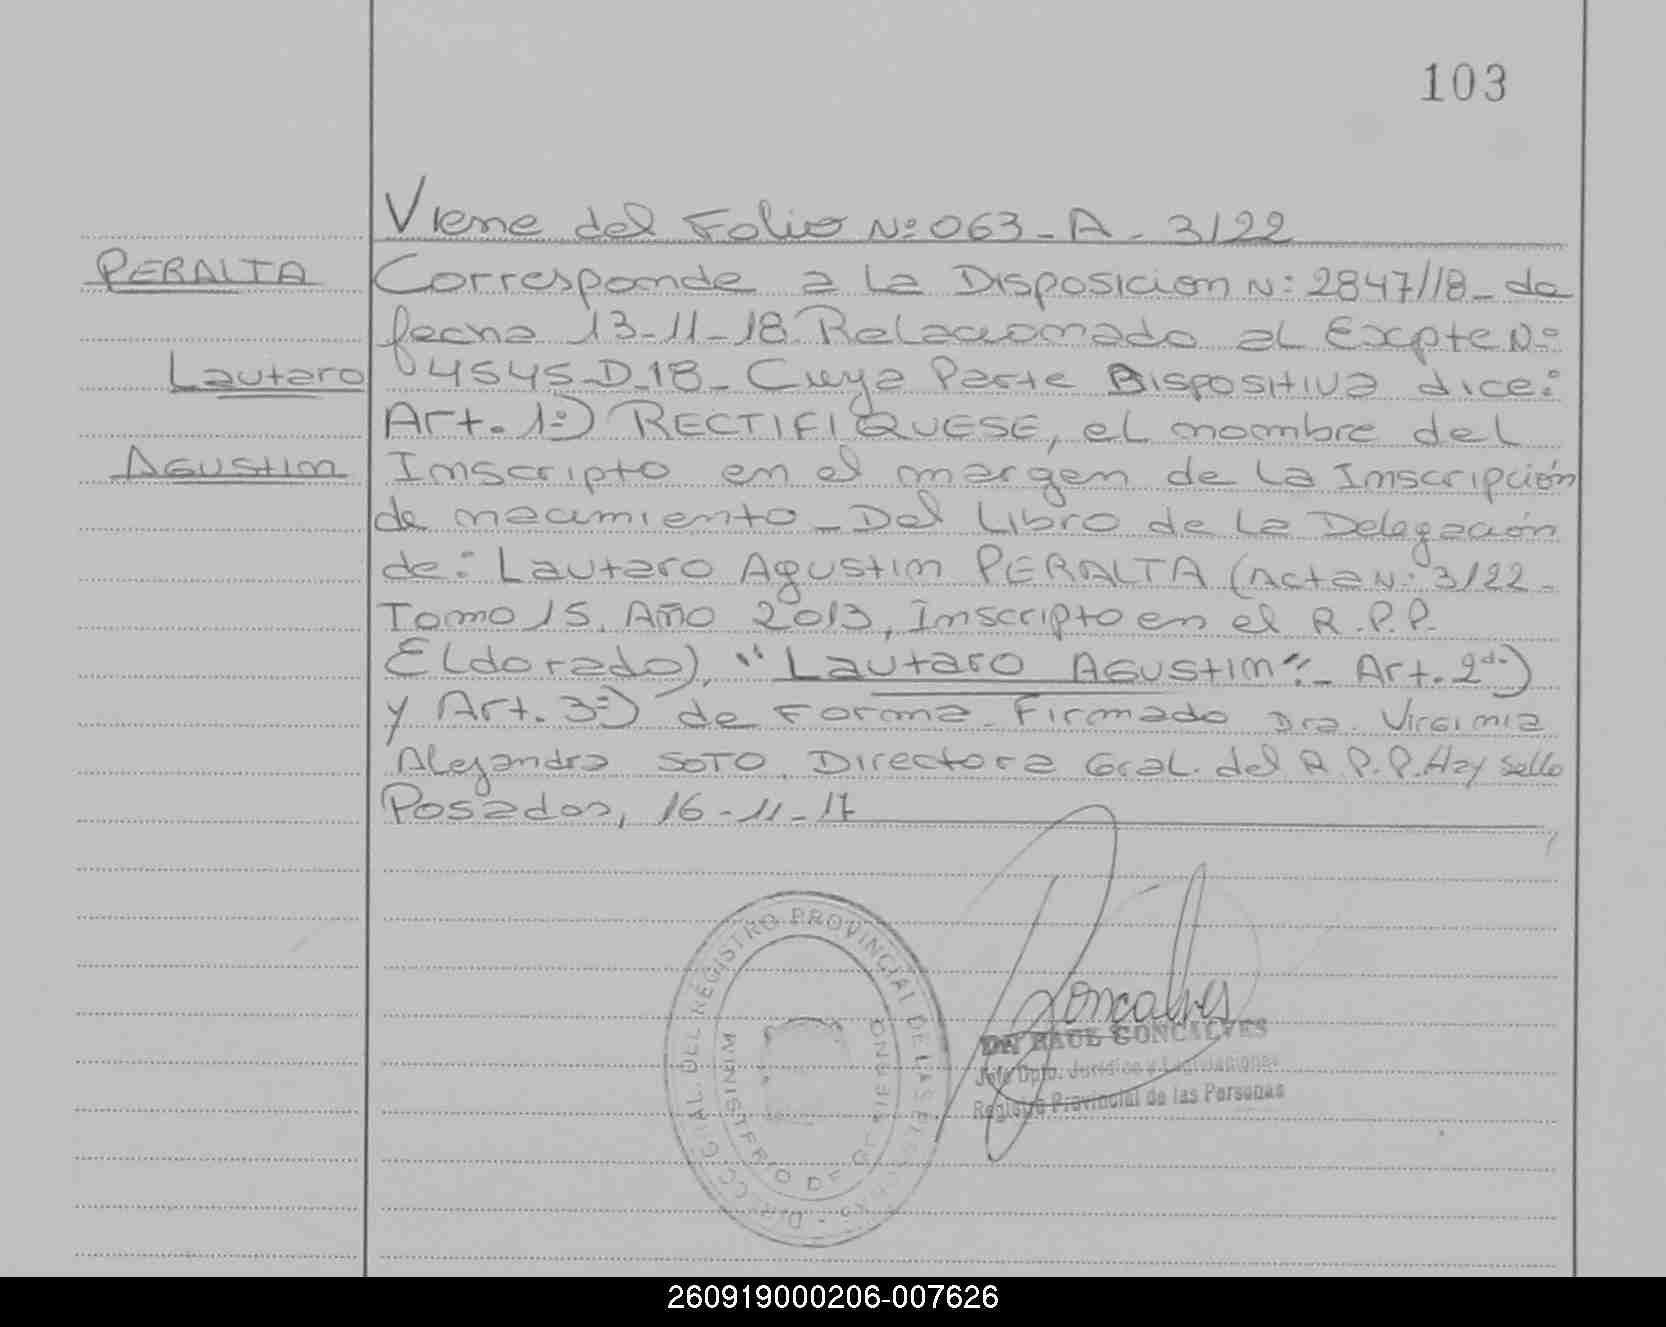 103
Viene del Folio Nº 063 - A - 3/22
PERALTA
Lautaro
Agustin
Corresponde a la Disposicion N: 2847/18 - de
fecha 13-11-18 Relacionado al Expte Nº
4545-D-18 - Cuya Parte Dispositiva dice:
Art. 1º) RECTIFIQUESE, el nombre del
Inscripto en el margen de la Inscripción
de nacimiento - Del Libro de la Delegación
de: Lautaro Agustin PERALTA (Acta N: 3/22 -
Tomo 15. Año 2013, Inscripto en el R.P.P.
Eldorado), "Lautaro Agustin". - Art. 2do)
y Art. 3º) de Forma - Firmado Dra. Virginia
Alejandra SOTO. Directora Gral. del R.P.P. Hay sello
Posadas, 16-11-17
REGISTRO PROVINCIAL DE LAS
MINISTERIO DE
Goncalves
DR RAUL GONCALVES
Jefe Dpto. Jurídico y
Registro Provincial de las Personas
260919000206-007626